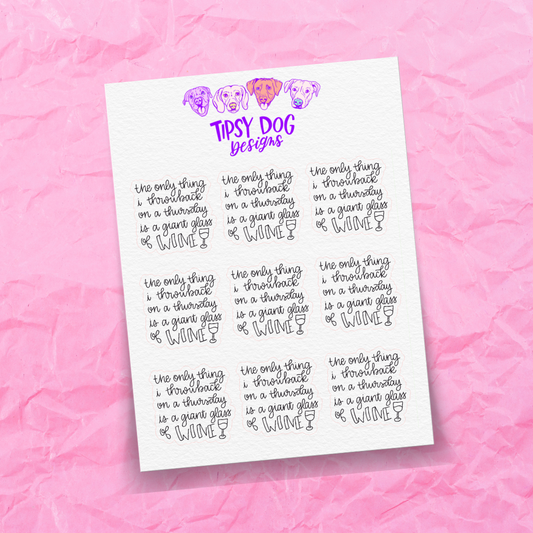 TIPSY DOG
Designs
the only thing
i throwback
on a thursday
is a giant glass
of WINE
the only thing
i throwback
on a thursday
is a giant glass
of WINE
the only thing
i throwback
on a thursday
is a giant glass
of WINE
the only thing
i throwback
on a thursday
is a giant glass
of WINE
the only thing
i throwback
on a thursday
is a giant glass
of WINE
the only thing
i throwback
on a thursday
is a giant glass
of WINE
the only thing
i throwback
on a thursday
is a giant glass
of WINE
the only thing
i throwback
on a thursday
is a giant glass
of WINE
the only thing
i throwback
on a thursday
is a giant glass
of WINE